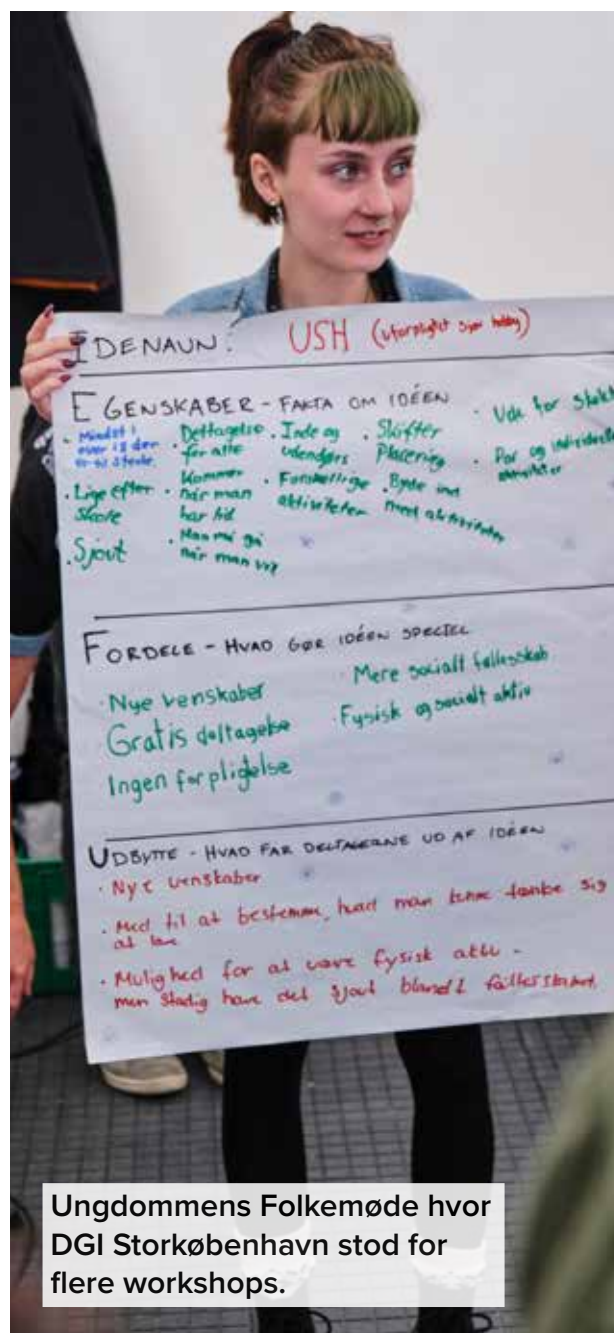 IDENAVN: USH (uforpligtet sjov hobby)
EGENSKABER - FAKTA OM IDÉEN
· Mindst 1
over 15 der
er til stede
· Lige efter
skole
· Sjovt
· Deltagelse
for alle
· Kommer
når man
har tid
· Man må gå
når man vil
· Inde og
udendørs
· Forskellige
aktiviteter
· Skifter
Placering
· Byde ind
med aktiviteter
· Ude for
· Par og individuelle
aktiviteter
FORDELE - HVAD GØR IDÉEN SPECIEL
· Nye venskaber
Gratis deltagelse
Ingen forpligtelse
· Mere socialt fællesskab
· Fysisk og socialt aktiv
UDBYTTE - HVAD FÅR DELTAGERNE UD AF IDÉEN
· Nye venskaber
· Med til at bestemme, hvad man kunne tænke sig
at lave
· Mulighed for at være fysisk aktiv -
men stadig have det sjovt blandt fællesskabet.
Ungdommens Folkemøde hvor
DGI Storkøbenhavn stod for
flere workshops.